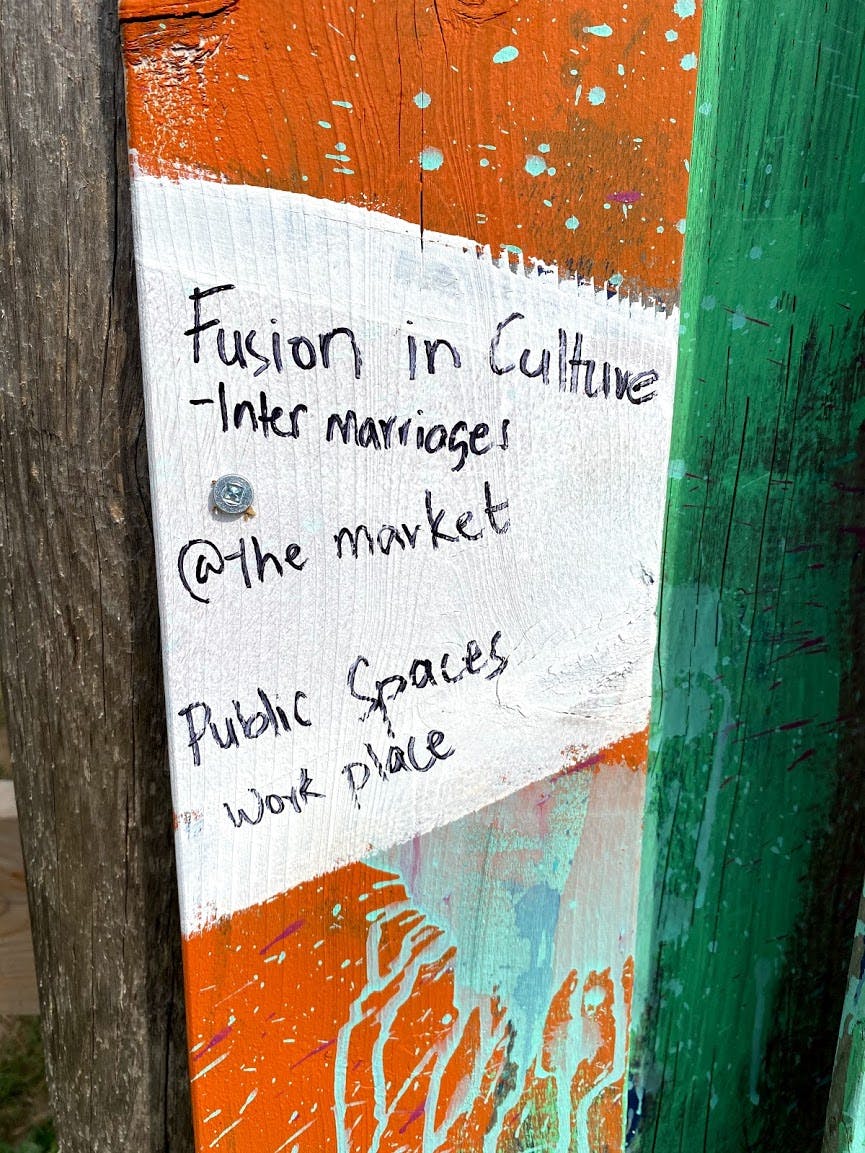 Fusion in Culture
-Inter marriages
@the market
Public Spaces
work place